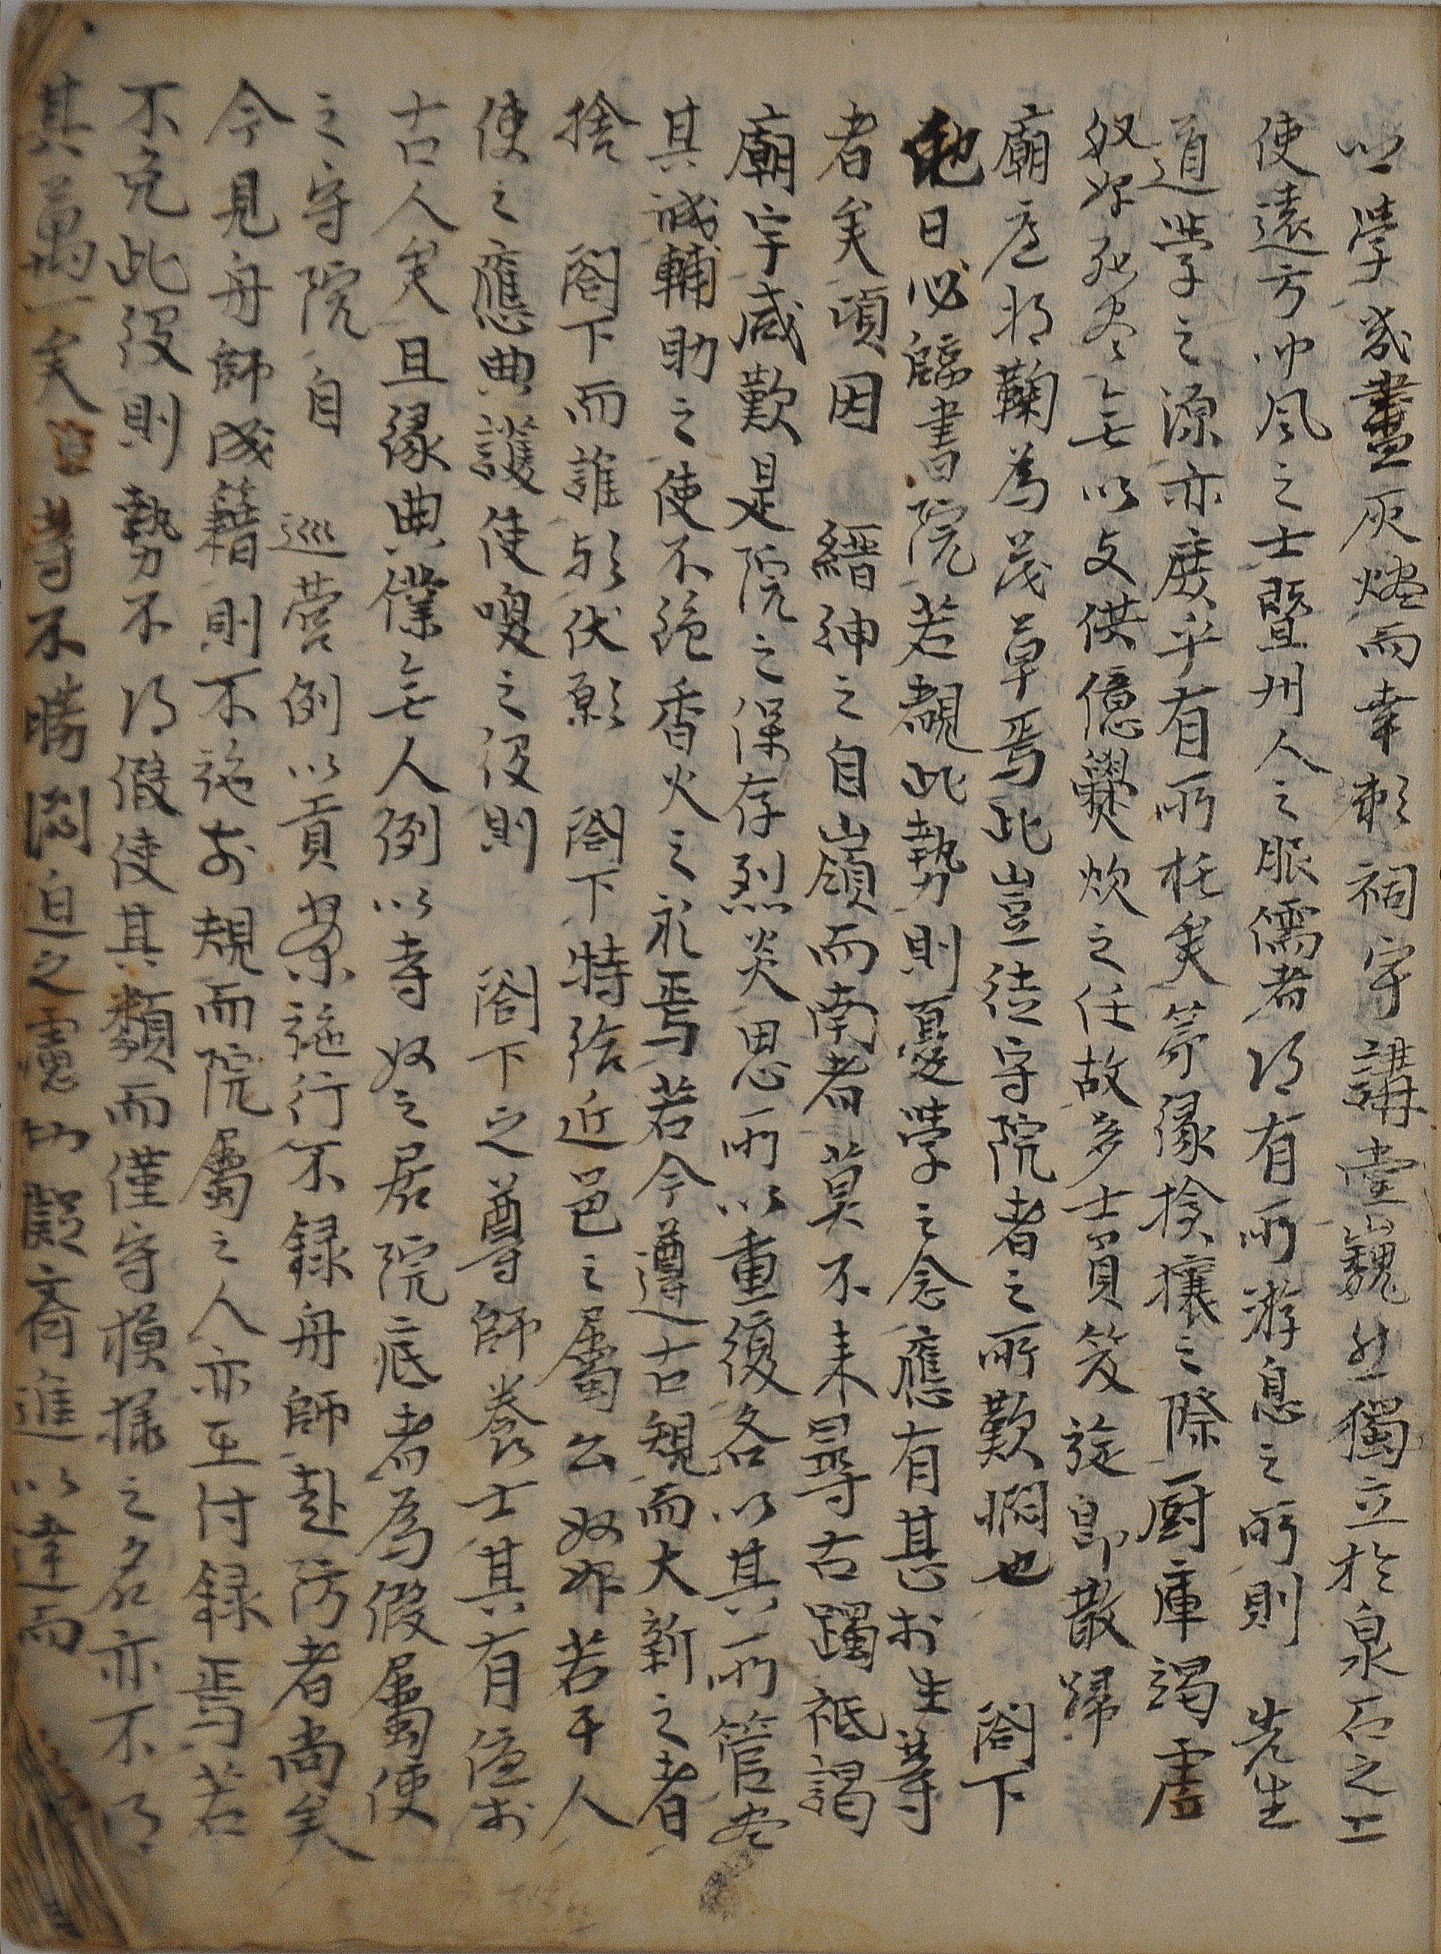 此學幾盡灰燼而幸彰祠宇講堂巍然獨立於泉石之上
使遠方冲風之士曁州人之服儒者得有所游息之所則 先生
道學之源亦庶乎有所托矣第緣搶攘之際厨庫渴虗
奴婢死盡無以支供億爨炊之任故多士負笈旋即散歸
廟庭將鞠爲茂草焉此豈徒守院者之所歎憫也 閤下
他日必臨書院若覩此勢則憂學之念應有甚於生等
者矣頃因 縉紳之自嶺而南者莫不來尋古躅祗謁
廟宇咸歎是院之保存烈炎思所以重復各以其所管盡
其誠輔助之使不絶香火之礼焉若今遵古規而大新之者
捨 閤下而誰欤伏願 閤下特給近邑之屬公奴婢若干人
使之應典護使喚之役則 閤下之尊師養士其有隆於
古人矣且緣典僕無人例以寺奴之居院底者爲假屬使
之守院自 巡營例以貢案施行不錄舟師赴防者尚矣
今見舟師成籍則不施前規而院屬之人亦至付錄焉若
不免此役則勢不得假使其類而僅守模樣之名亦不得
其萬一矣 等不勝悶迫之懷 齊進以達而